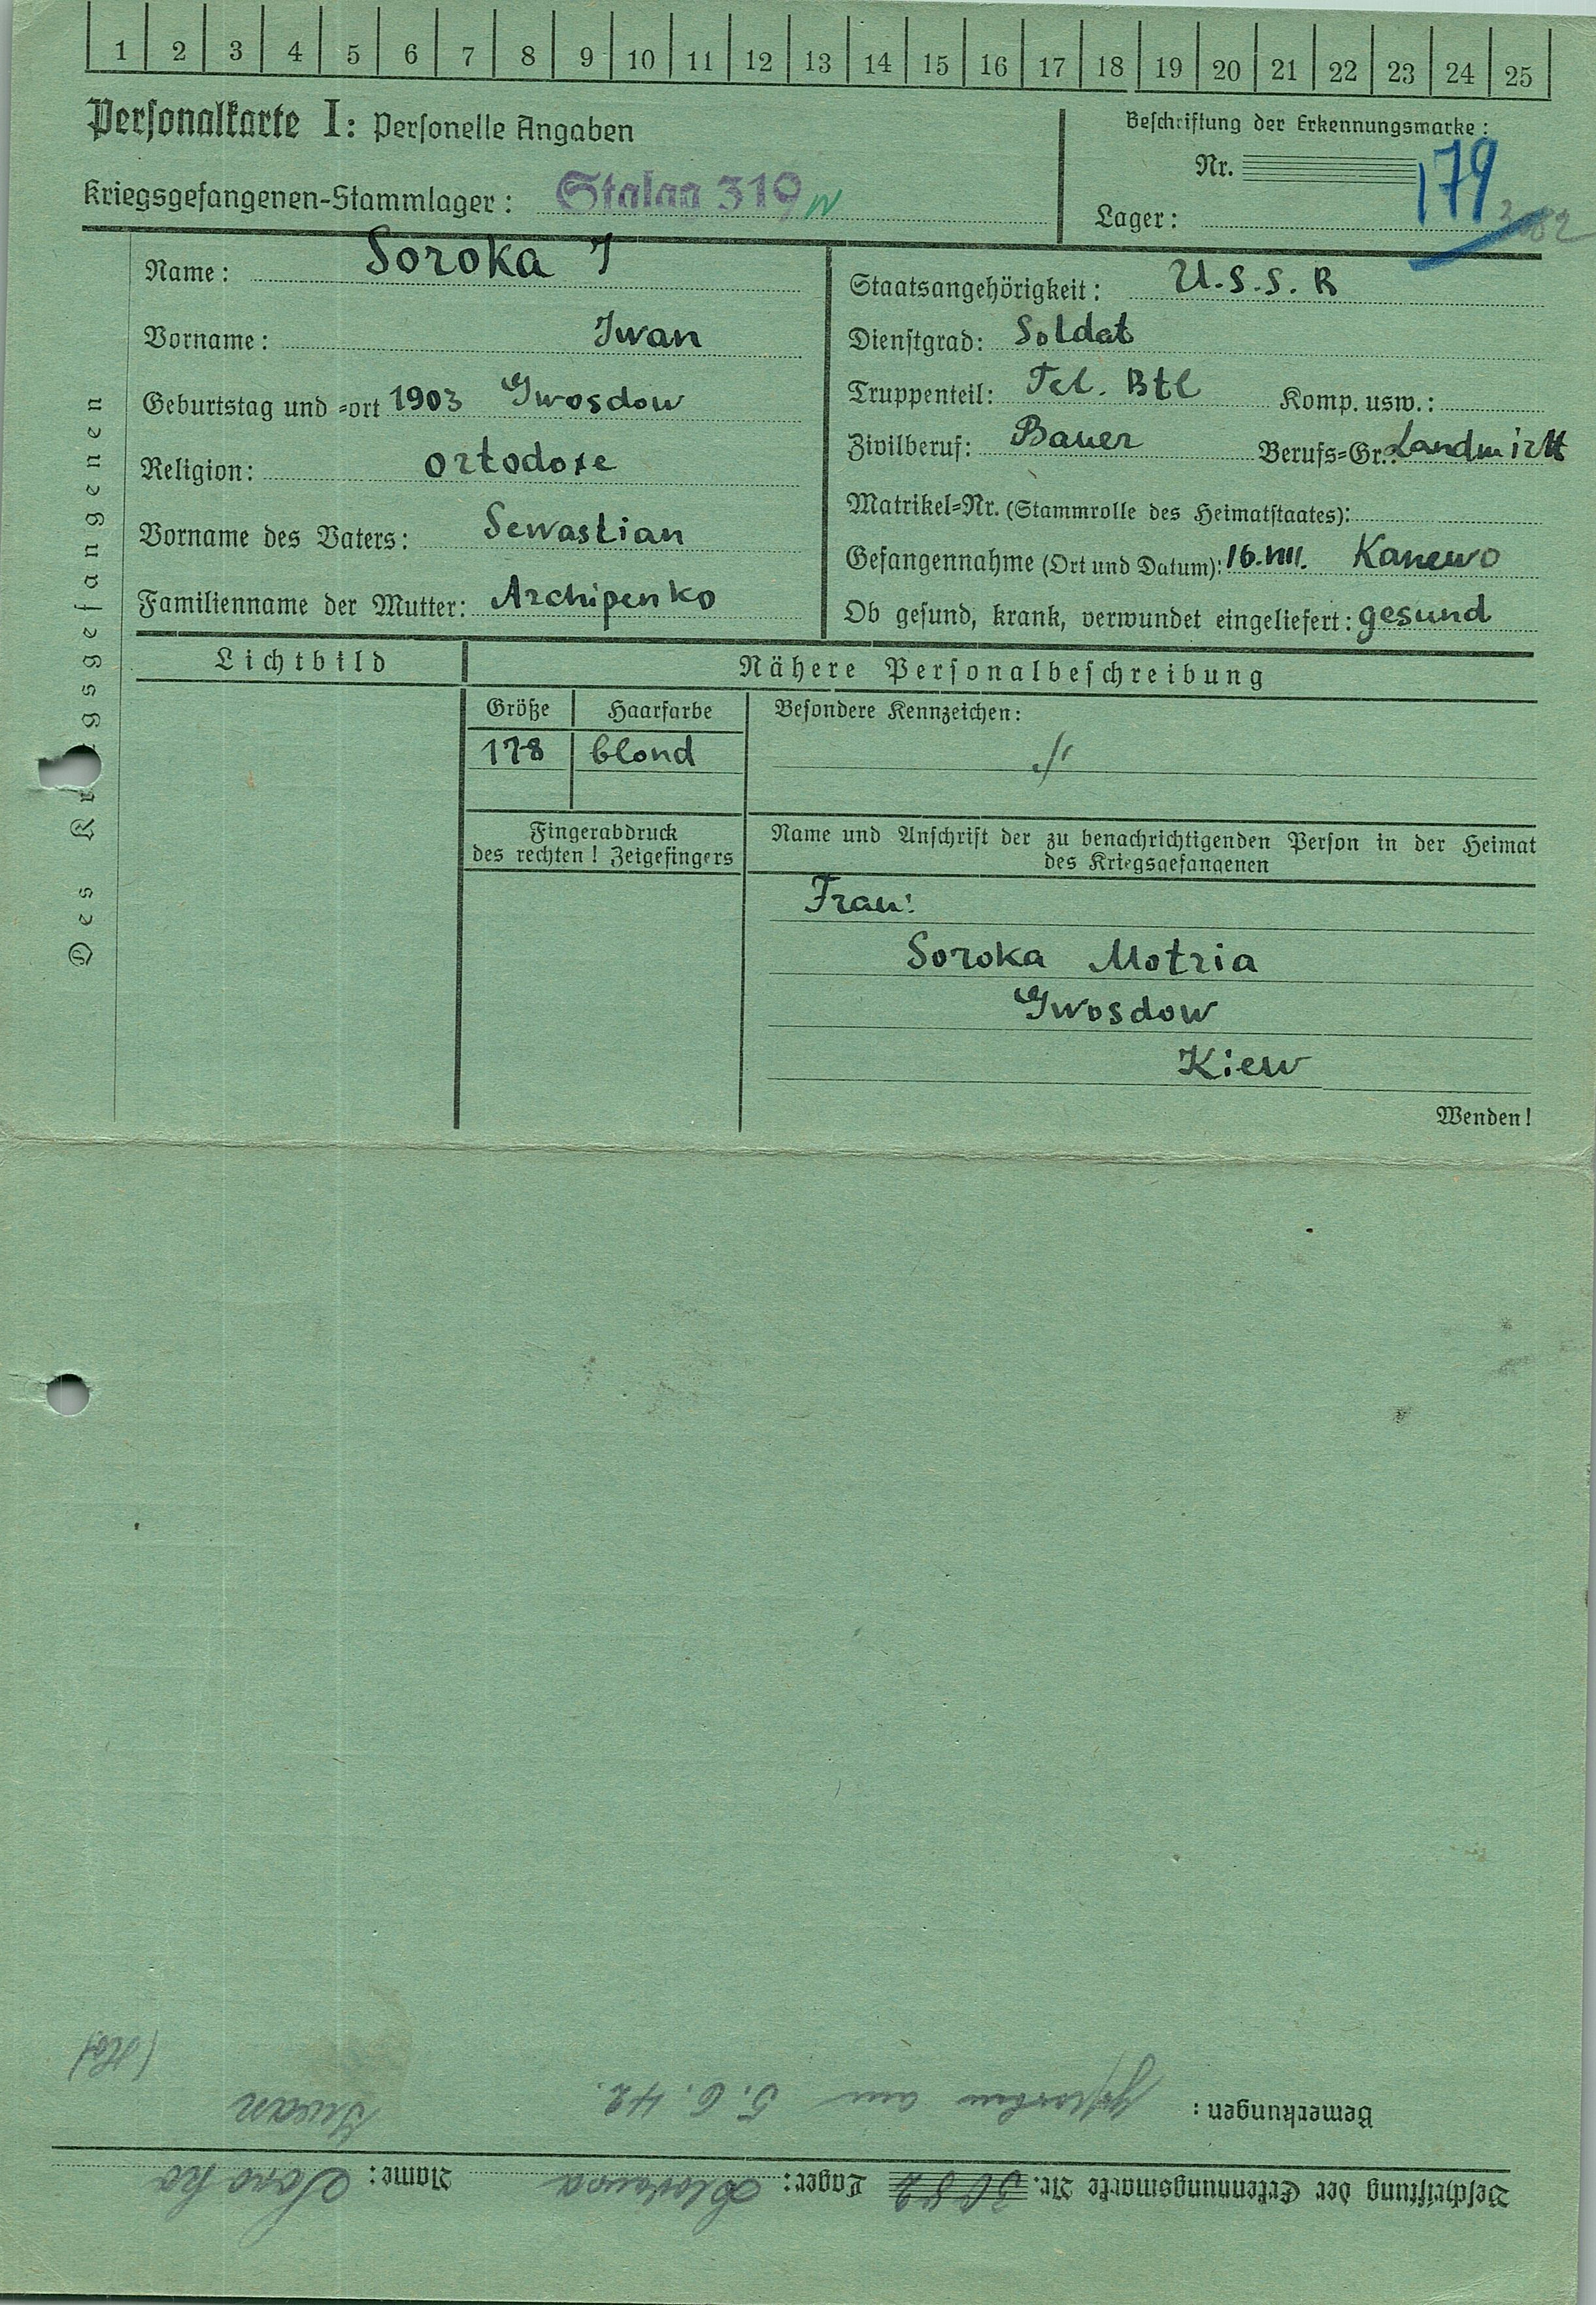 1 2 3 4 5 6 7 8 9 10 11 12 13 14 15 16 17 18 19 20 21 22 23 24 25
Personalkarte I: Personelle Angaben
Kriegsgefangenen-Stammlager: Stalag 319
Beschriftung der Erkennungsmarke:
Nr. 179
Lager:
Des Kriegsgefangenen
Name: Soroka I
Vorname: Iwan
Geburtstag und -ort 1903 Gwosdow
Religion: ortodoxe
Vorname des Vaters: Sewastian
Familienname der Mutter: Archipenko
Staatsangehörigkeit: U.S.S.R
Dienstgrad: Soldat
Truppenteil: Tel. Btl Komp. usw.:
Zivilberuf: Bauer Berufs-Gr.: Landwirtt
Matrikel-Nr. (Stammrolle des Heimatstaates):
Gefangennahme (Ort und Datum): 16.VIII. Kanewo
Ob gesund, krank, verwundet eingeliefert: gesund
Lichtbild
Nähere Personalbeschreibung
Größe Haarfarbe Besondere Kennzeichen:
178 blond ./.
Fingerabdruck
des rechten! Zeigefingers
Name und Anschrift der zu benachrichtigenden Person in der Heimat
des Kriegsgefangenen
Frau:
Soroka Motria
Gwosdow
Kiew
Wenden!
Beschriftung der Erkennungsmarke Nr. 3082 Lager: Name: Soroka
Iwan
Bemerkungen: gestorben am 5.6.42.